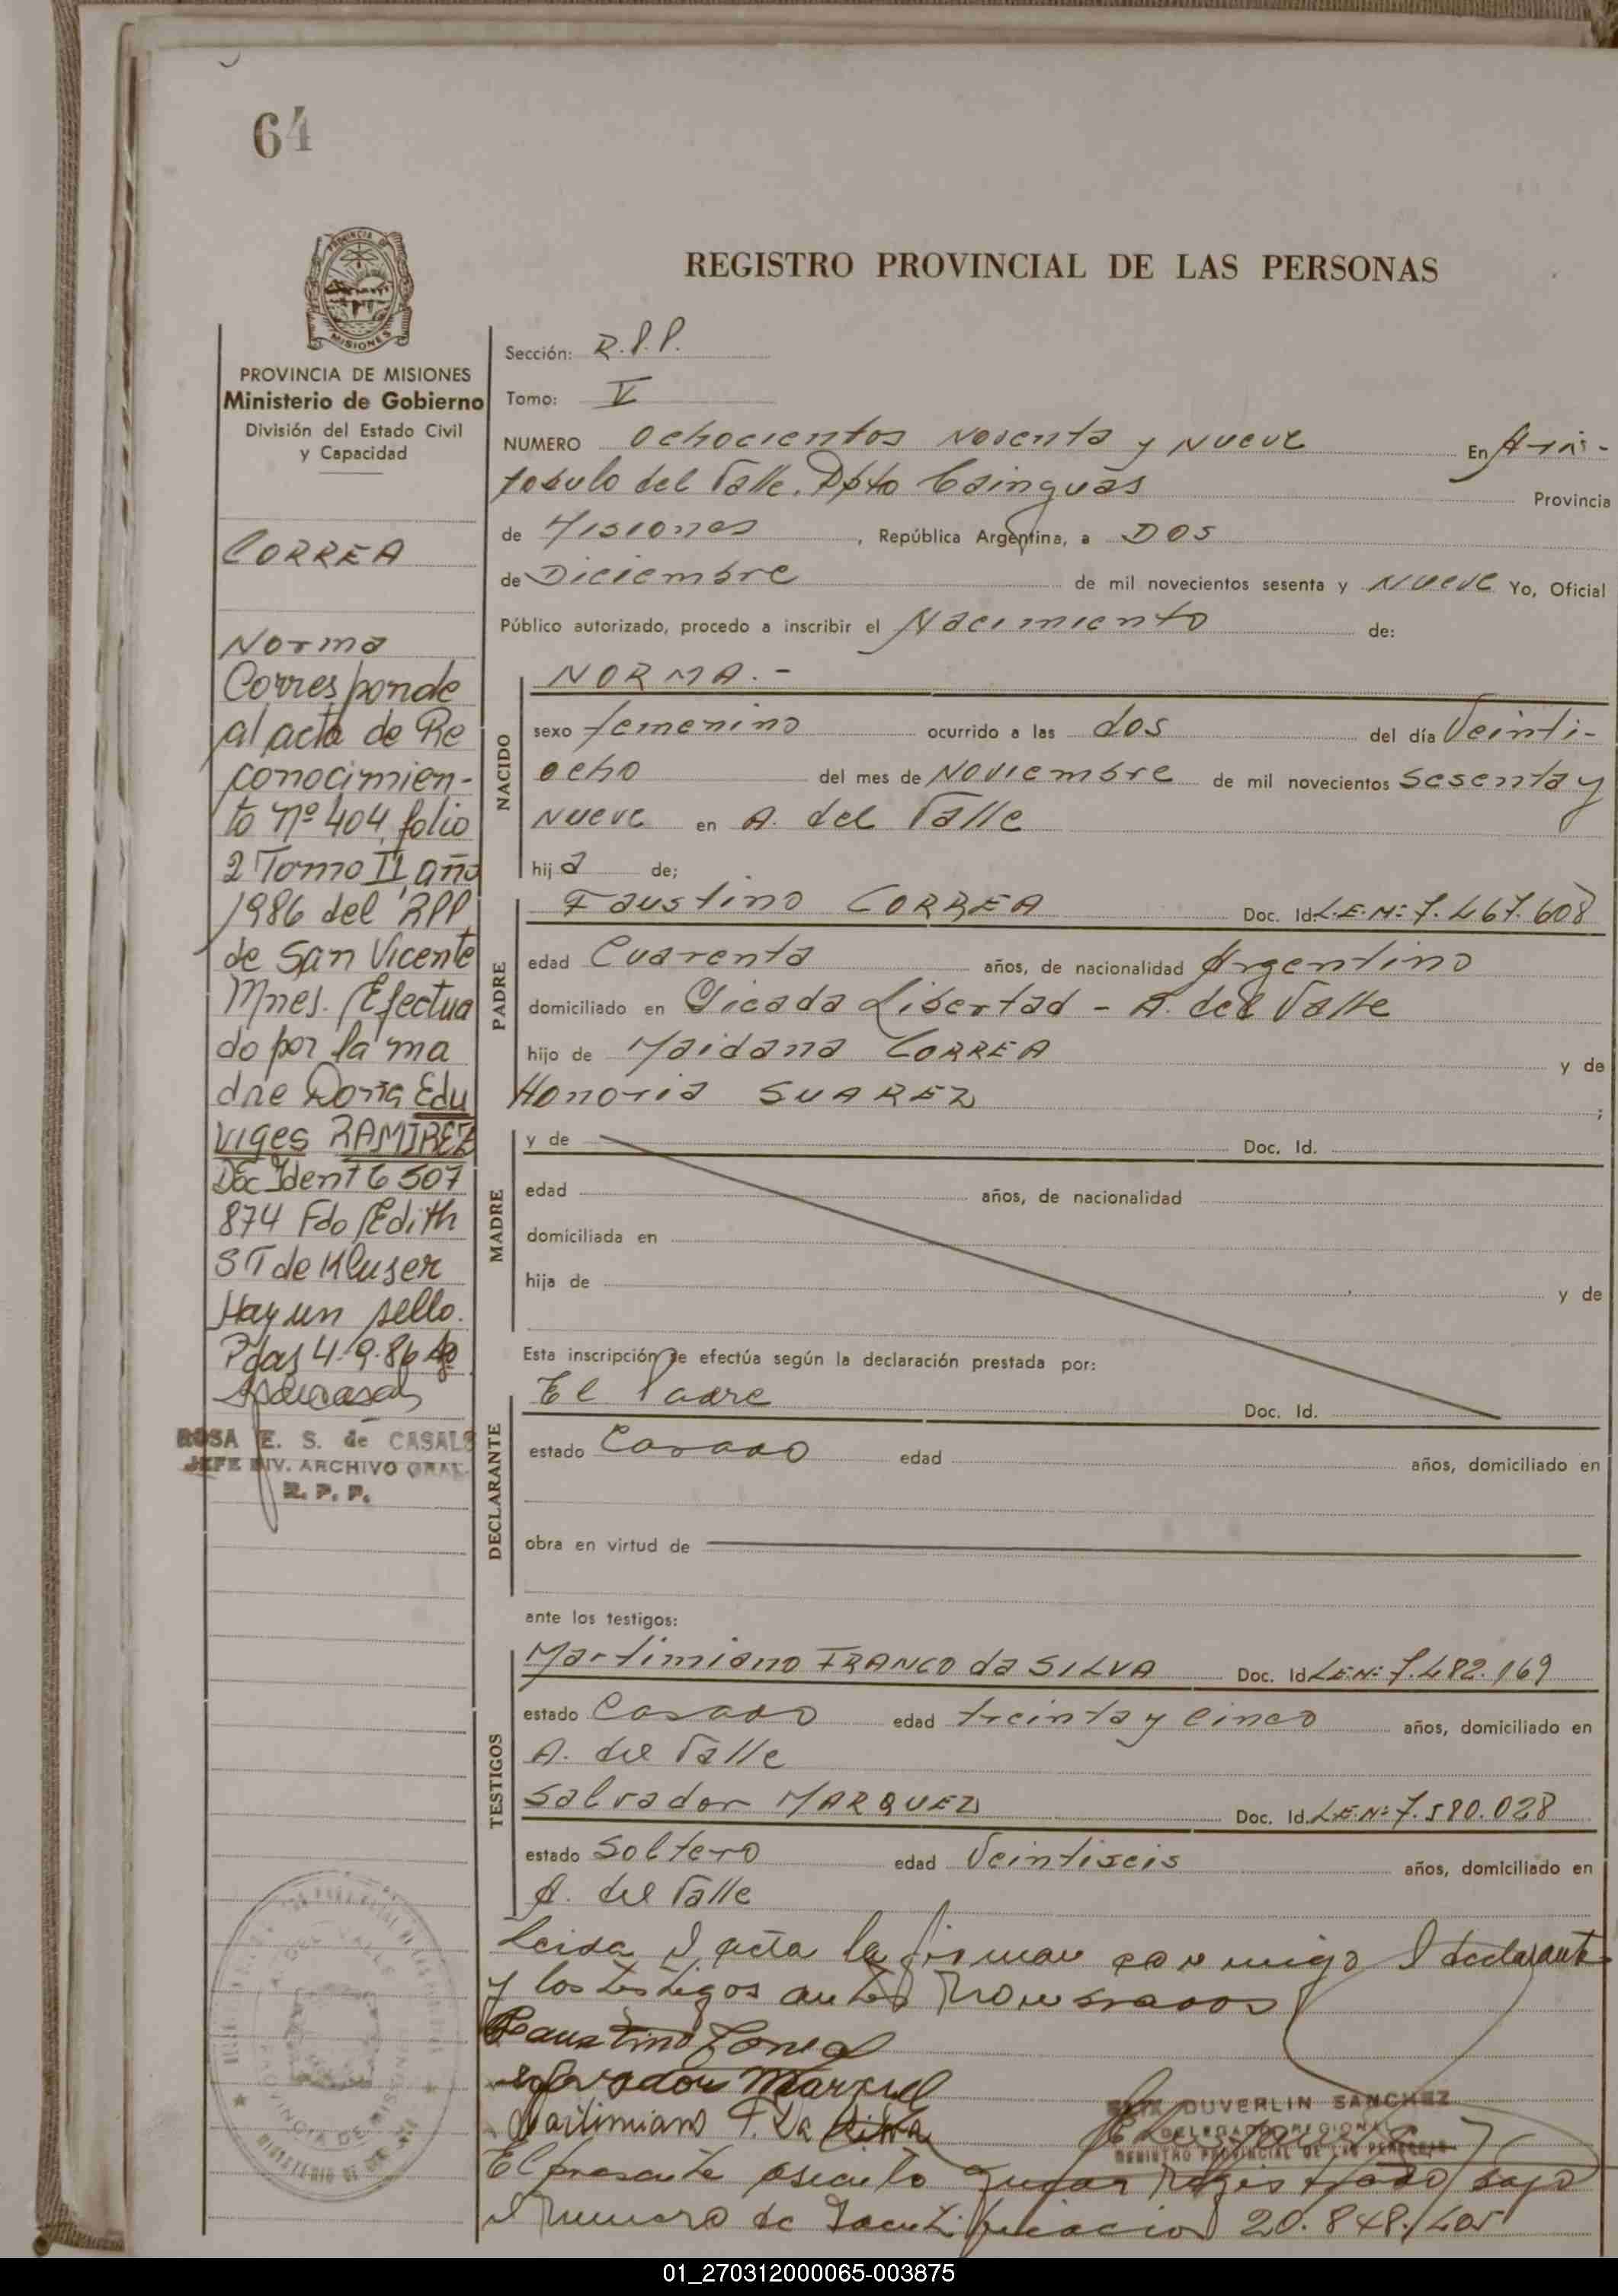 64
PROVINCIA DE
MISIONES
PROVINCIA DE MISIONES
Ministerio de Gobierno
División del Estado Civil
y Capacidad
CORREA
Norma
Corresponde
al acta de Re
conocimien-
to Nº 404, folio
2 Tomo II, año
1986 del RPP
de San Vicente
Mnes. Efectua
do por la ma
dre Doña Edu
viges RAMIREZ
Doc Ident 6 507
874 Fdo Edith
ST de Kluser
Hay un sello.
Pdas 4-9-86
ROSA E. S. de CASALS
JEFE DIV. ARCHIVO GRAL.
R. P. P.
REGISTRO PROVINCIAL DE LAS PERSONAS
Sección: R.P.P.
Tomo: V
NUMERO Ochocientos Noventa y Nueve En Aris-
tobulo del Valle, Dpto Cainguás Provincia
de Misiones, República Argentina, a DOS
de Diciembre de mil novecientos sesenta y Nueve Yo, Oficial
Público autorizado, procedo a inscribir el Nacimiento de:
NACIDO
NORMA.-
sexo femenino ocurrido a las dos del día Veinti-
ocho del mes de Noviembre de mil novecientos Sesenta y
Nueve en A. del Valle
hija de;
PADRE
Faustino CORREA Doc. Id. L.E.Nº 7.467.608
edad Cuarenta años, de nacionalidad Argentino
domiciliado en Picada Libertad - A. del Valle
hijo de Maidana CORREA y de
Honoria SUAREZ ;
MADRE
y de Doc. Id.
edad años, de nacionalidad
domiciliada en
hija de y de
Esta inscripción se efectúa según la declaración prestada por:
DECLARANTE
El Padre Doc. Id.
estado Casado edad años, domiciliado en
obra en virtud de
ante los testigos:
TESTIGOS
Martimiano FRANCO da SILVA Doc. Id. L.E.Nº 7.482.169
estado Casado edad treinta y cinco años, domiciliado en
A. del Valle
Salvador MARQUEZ Doc. Id. L.E.Nº 7.580.028
estado Soltero edad Veintiseis años, domiciliado en
A. del Valle
Leida el acta la firman conmigo el declarante
y los testigos antes nombrados
Faustino Correa
Salvador Marquez
Martimiano F. Da Silva
FELIX DUVERLIN SANCHEZ
DELEGADO REGIONAL
REGISTRO PROVINCIAL DE LAS PERSONAS
El presente asiento queda registrado bajo
el numero de Identificacion 20.848.405
01_270312000065-003875